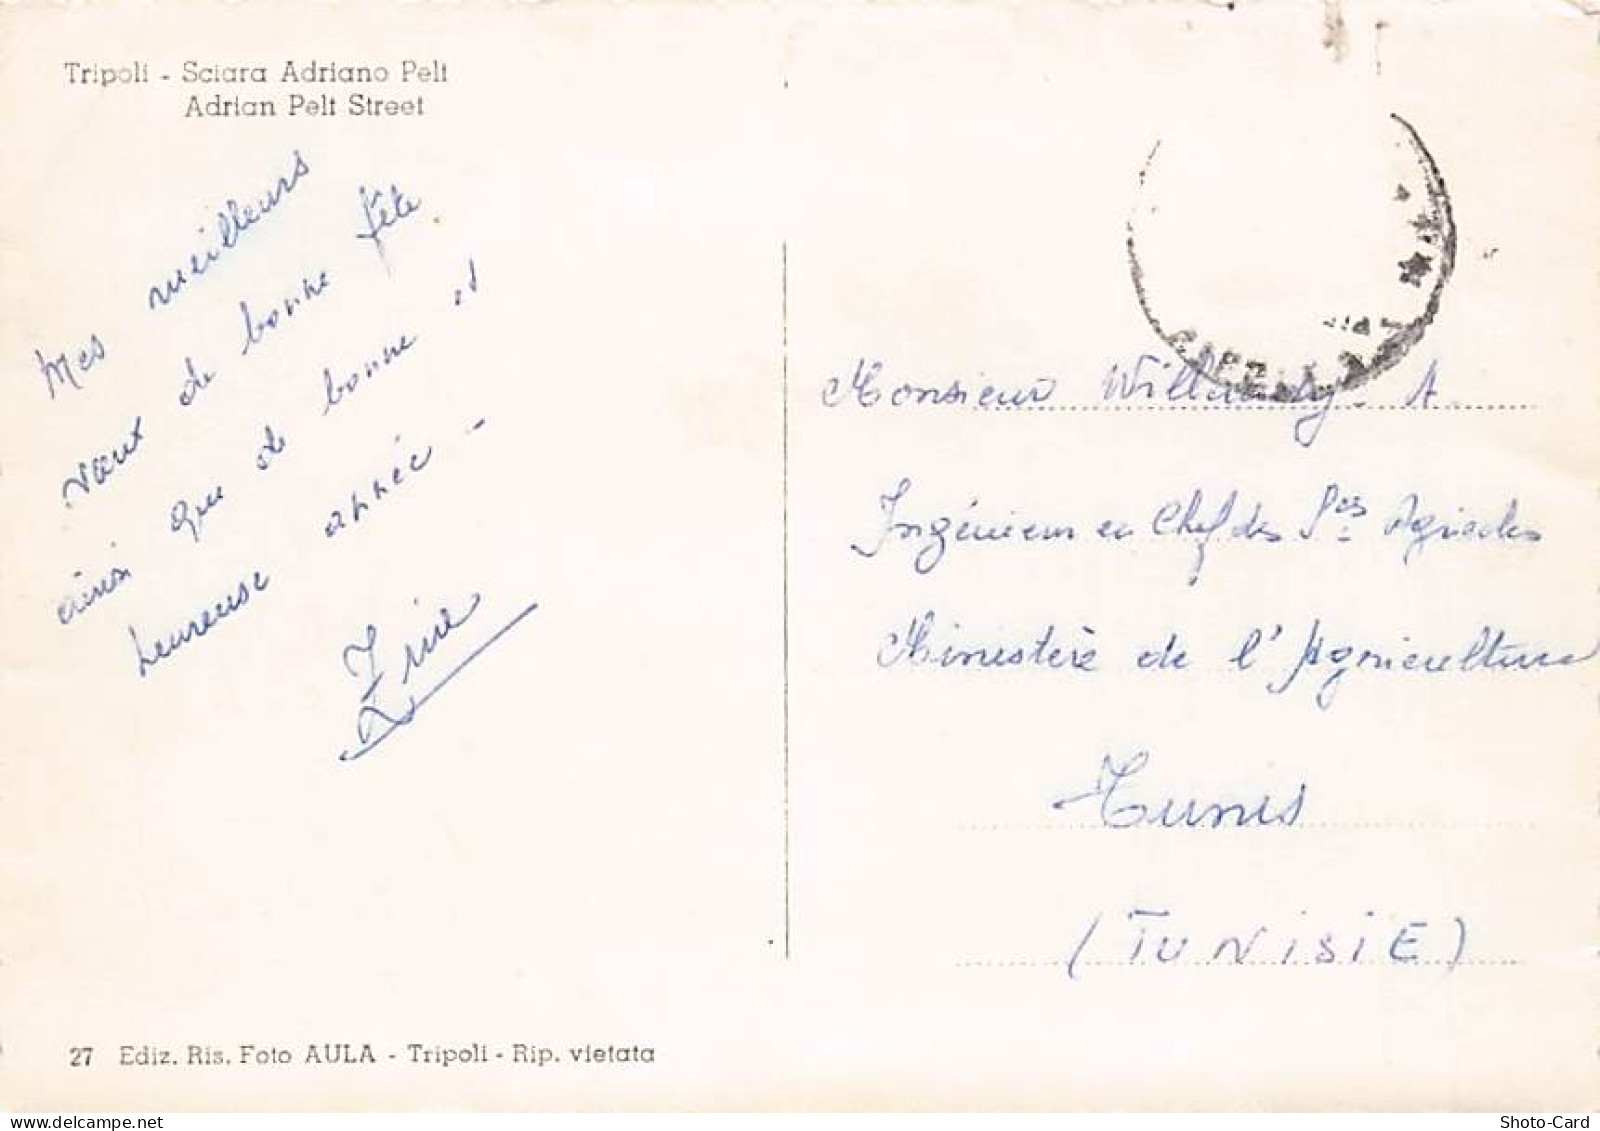 Tripoli - Sciara Adriano Pelt
Adrian Pelt Street
Mes meilleurs
vœux de bonne fête
ainsi que de bonne et
heureuse année -
27 Ediz. Ris. Foto AULA - Tripoli - Rip. vietata
Monsieur A
Ingénieur en Chef des Sces Agricoles
Ministère de l'Agriculture
Tunis
(TUNISIE)
Shoto-Card